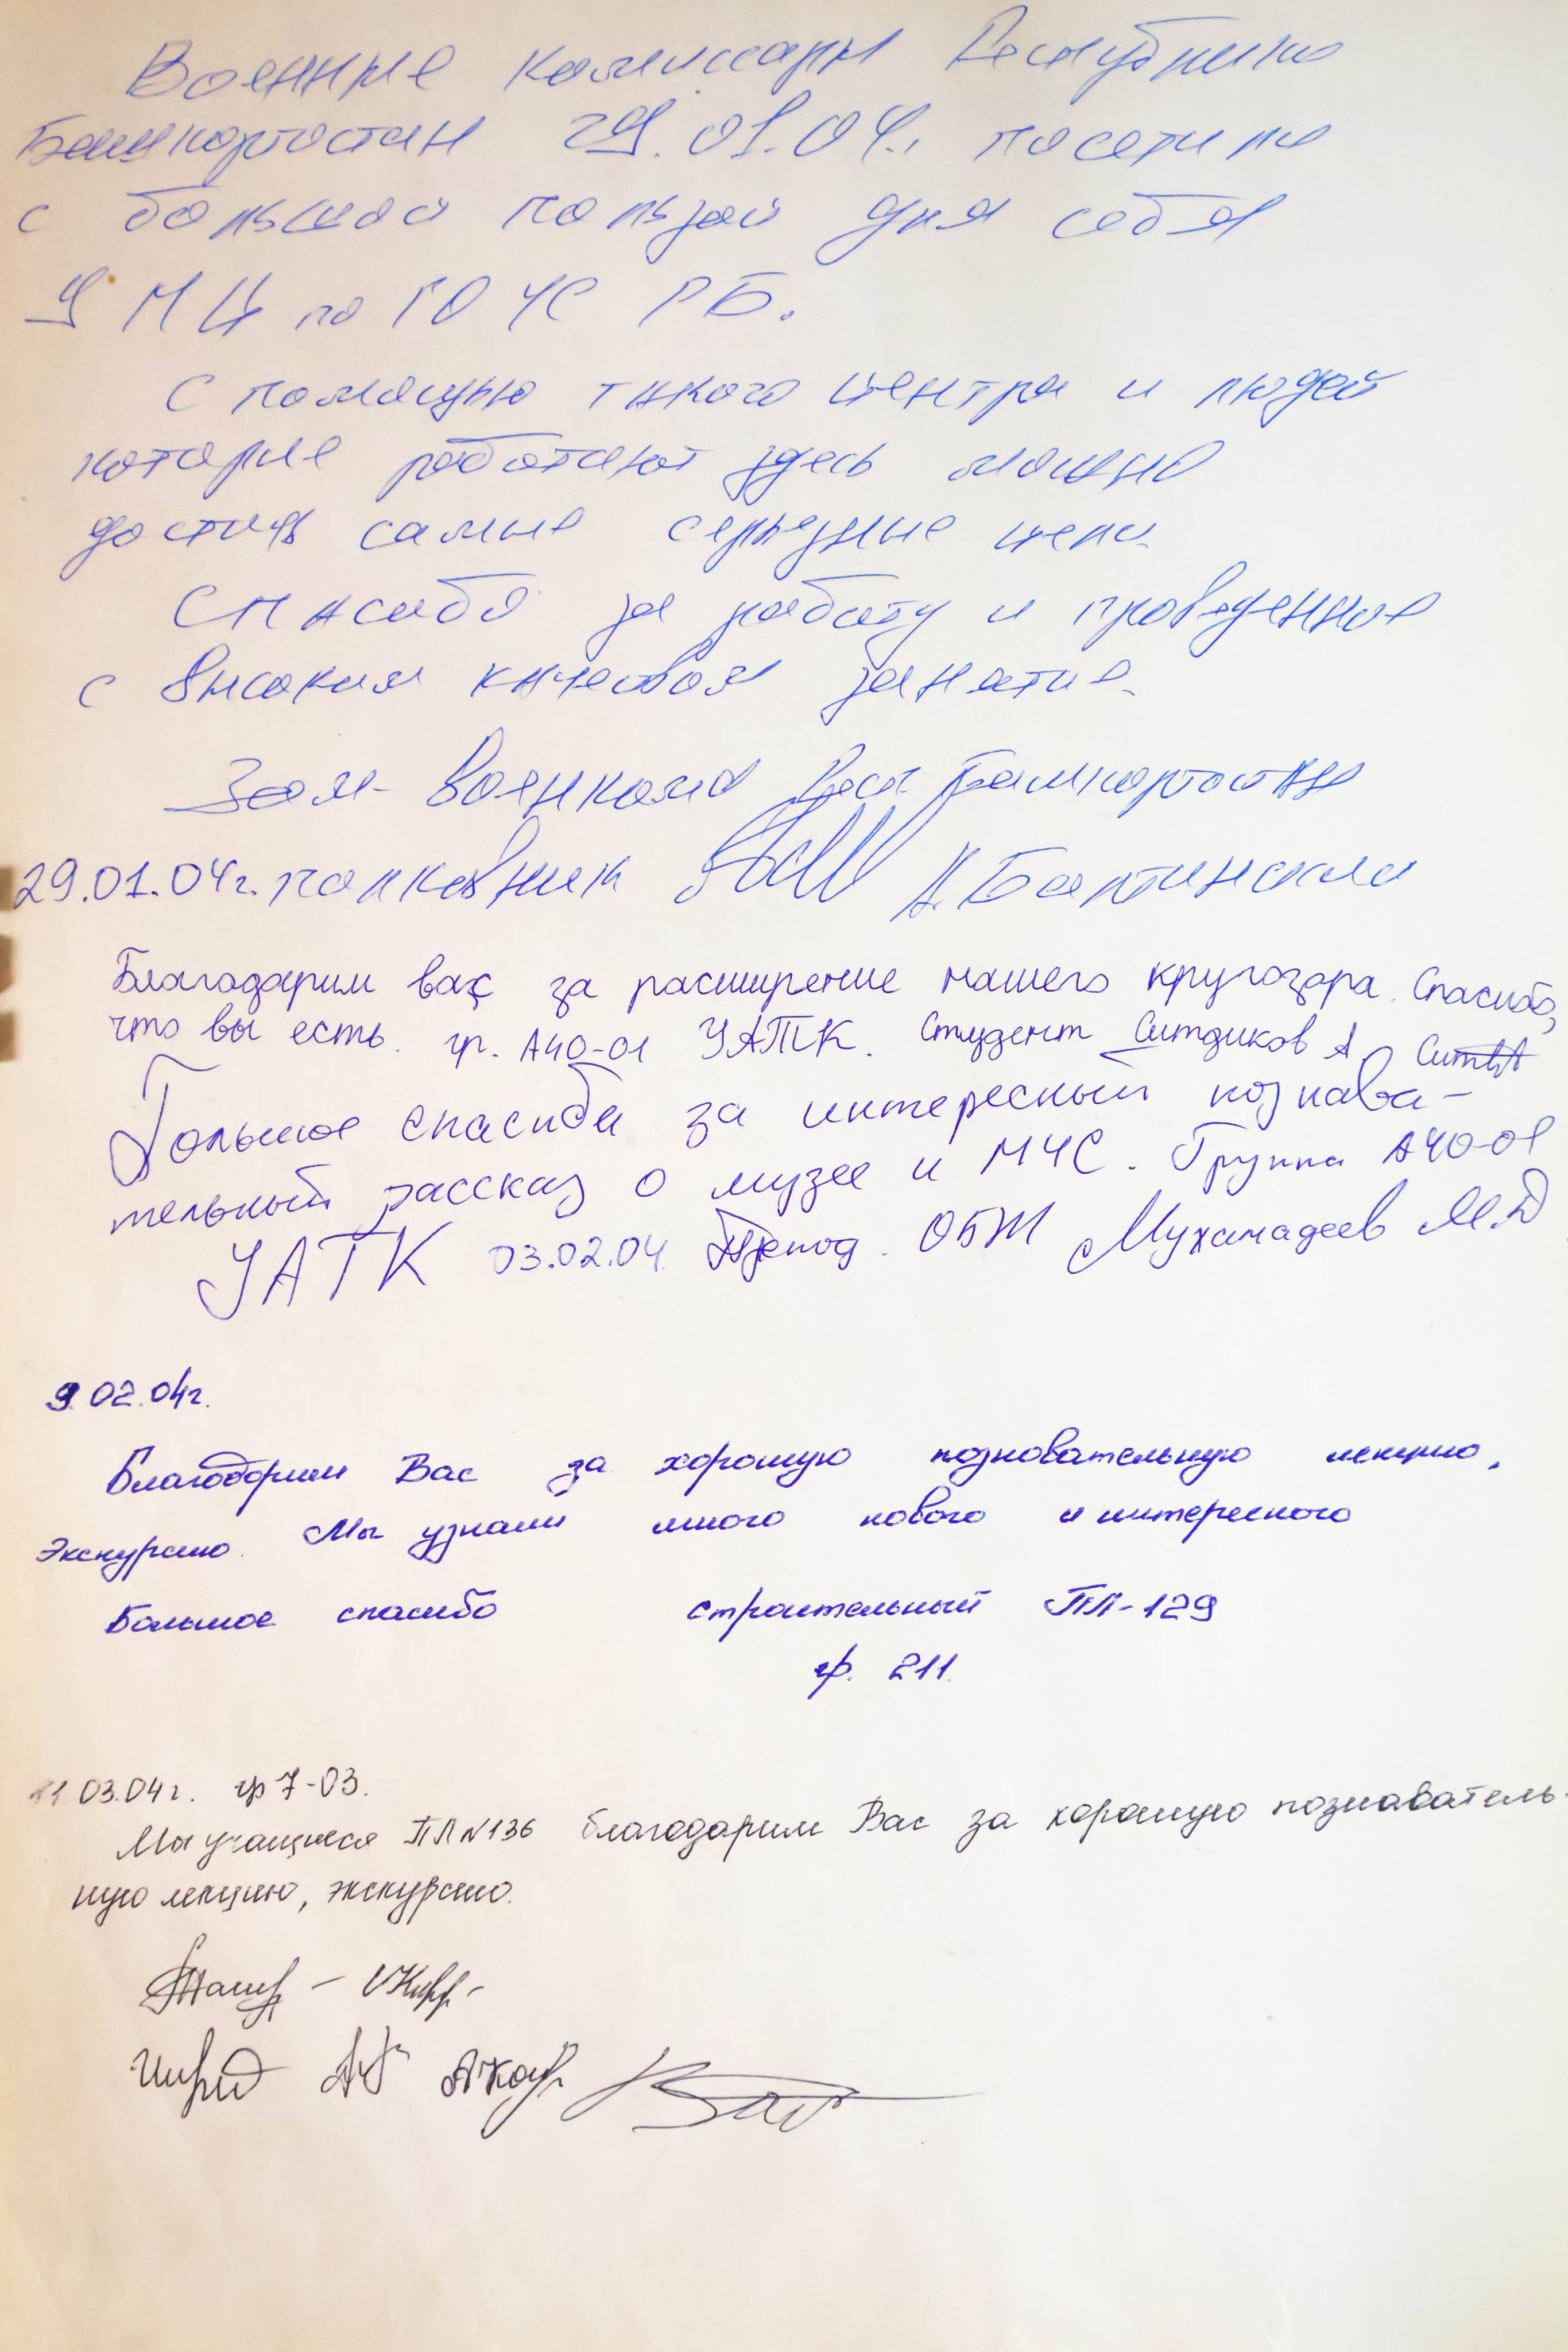 Военные комиссары Республики
Башкортостан 29.01.04г. посетили
с большой пользой для себя
УМЦ по ГО ЧС РБ.
С помощью такого центра и людей
которые работают здесь можно
достичь самые серьезные цели
Спасибо за работу и проведенное
с высоким качеством занятие.
Зам. военкома Респ Башкортостан
29.01.04г. полковник
Благодарим вас за расширение нашего кругозора. Спасибо,
что вы есть. гр. А40-01 УАТК. Студент Ситдиков А.
Большое спасибо за интересный познава-
тельный рассказ о музее и МЧС. Группа А40-01
УАТК 03.02.04 Препод. ОБЖ Мухамадеев М.Д
9.02.04г.
Благодорим Вас за хорошую позновательную лекцию,
Экскурсию. Мы узнали много нового и интересного
Большое спасибо строительный ПЛ-129
гр. 211.
11.03.04г. гр 7-03.
Мы учащиеся ПЛ N136 благодарим Вас за хорошую познаватель-
ную лекцию, экскурсию.